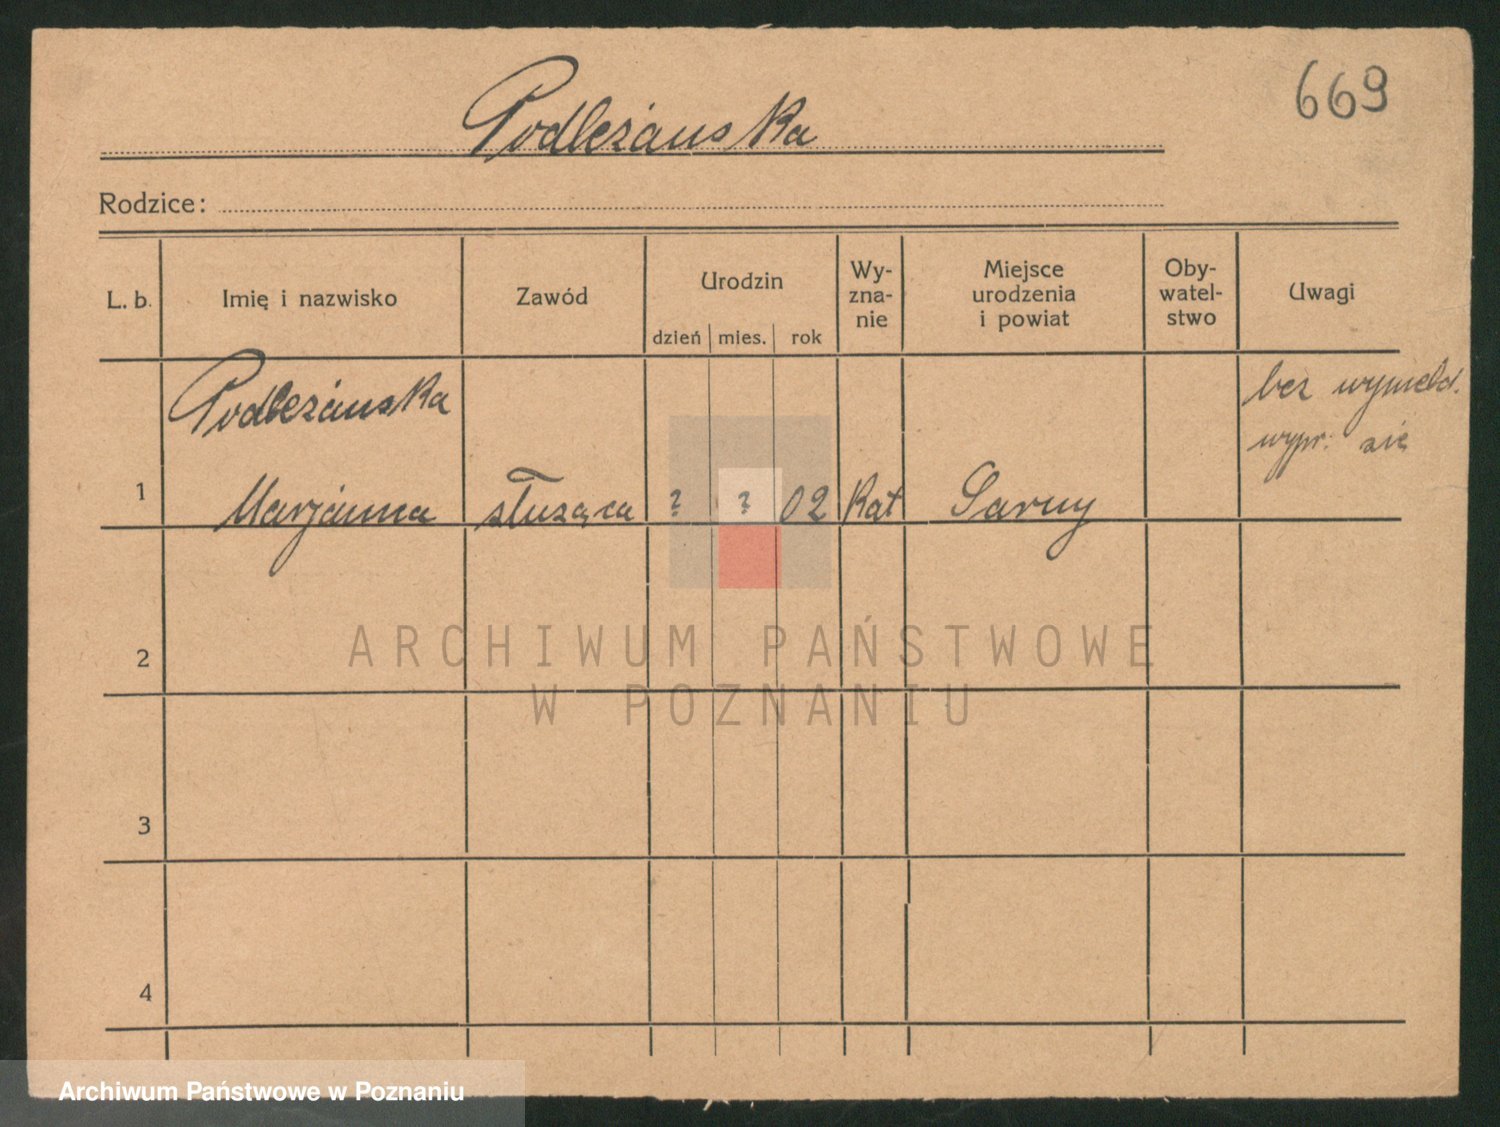 669
Podleżańska
Rodzice:
L. b. Imię i nazwisko Zawód Urodzin dzień mies. rok Wy-zna-nie Miejsce urodzenia i powiat Oby-watel-stwo Uwagi
Podleżańska bez wymeld.
wypr. się
1 Marjanna służąca ? ? 02 Kat Sarny
2
3
4
ARCHIWUM PAŃSTWOWE
W POZNANIU
Archiwum Państwowe w Poznaniu